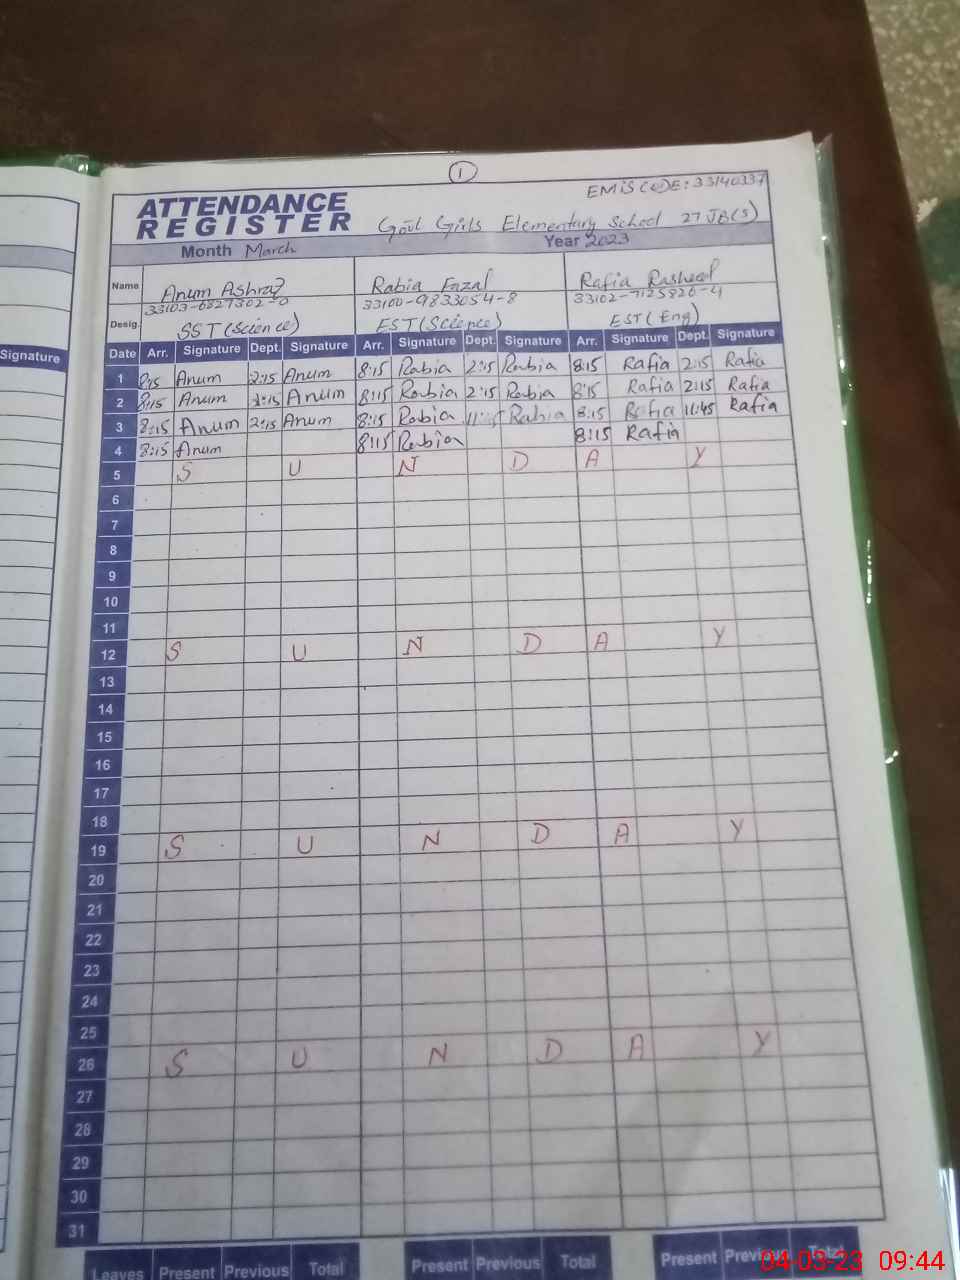 1
EMIS CODE: 33140337
ATTENDANCE
REGISTER
Govt Girls Elementary School 27 JB(S)
Month March Year 2023
Name Anum Ashraf Rabia Fazal Rafia Rasheed
33103-6827302-0 33100-9833054-8 33102-7125826-4
Desig. SST (Science) EST (Science) EST (Eng)
Signature
Date Arr. Signature Dept. Signature Arr. Signature Dept. Signature Arr. Signature Dept. Signature
1 8:15 Anum 2:15 Anum 8:15 Rabia 2:15 Rabia 8:15 Rafia 2:15 Rafia
2 8:15 Anum 2:15 Anum 8:15 Rabia 2:15 Rabia 8:15 Rafia 2:15 Rafia
3 8:15 Anum 2:15 Anum 8:15 Rabia Rabia 8:15 Rafia 11:45 Rafia
4 8:15 Anum 8:15 Rabia 8:15 Rafia
5 S U N D A Y
6
7
8
9
10
11
12 S U N D A Y
13
14
15
16
17
18
19 S U N D A Y
20
21
22
23
24
25
26 S U N D A Y
27
28
29
30
31
Leaves Present Previous Total Present Previous Total Present Previous Total
04-03-23 09:44